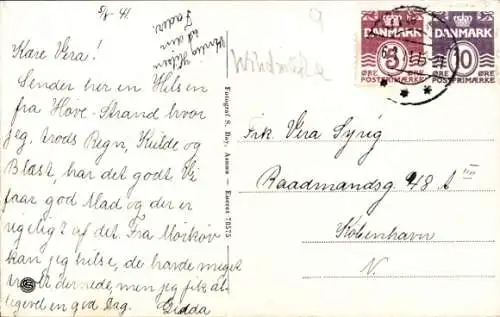 5/8 - 41.
Kære Vera!
Sender her en Hilsen
fra Høve-Strand hvor
jeg, trods Regn, Kulde og
Blæst, har det godt. Vi
faar god Mad og der er
rigelig af det. Fra Mørkøv
kan jeg hilse, de havde meget
travlt dernede, men jeg fik al-
ligevel en god Dag. Gedda
Hilsen
Fader.
Fotograf S. Bay, Asnæs — Eneret 78575
DANMARK
3
ØRE ØRE
POSTFRIMÆRKE
DANMARK
10
ØRE ØRE
POSTFRIMÆRKE
Frk. Vera Syrig
Raadmandsg. 48 A
København
N.